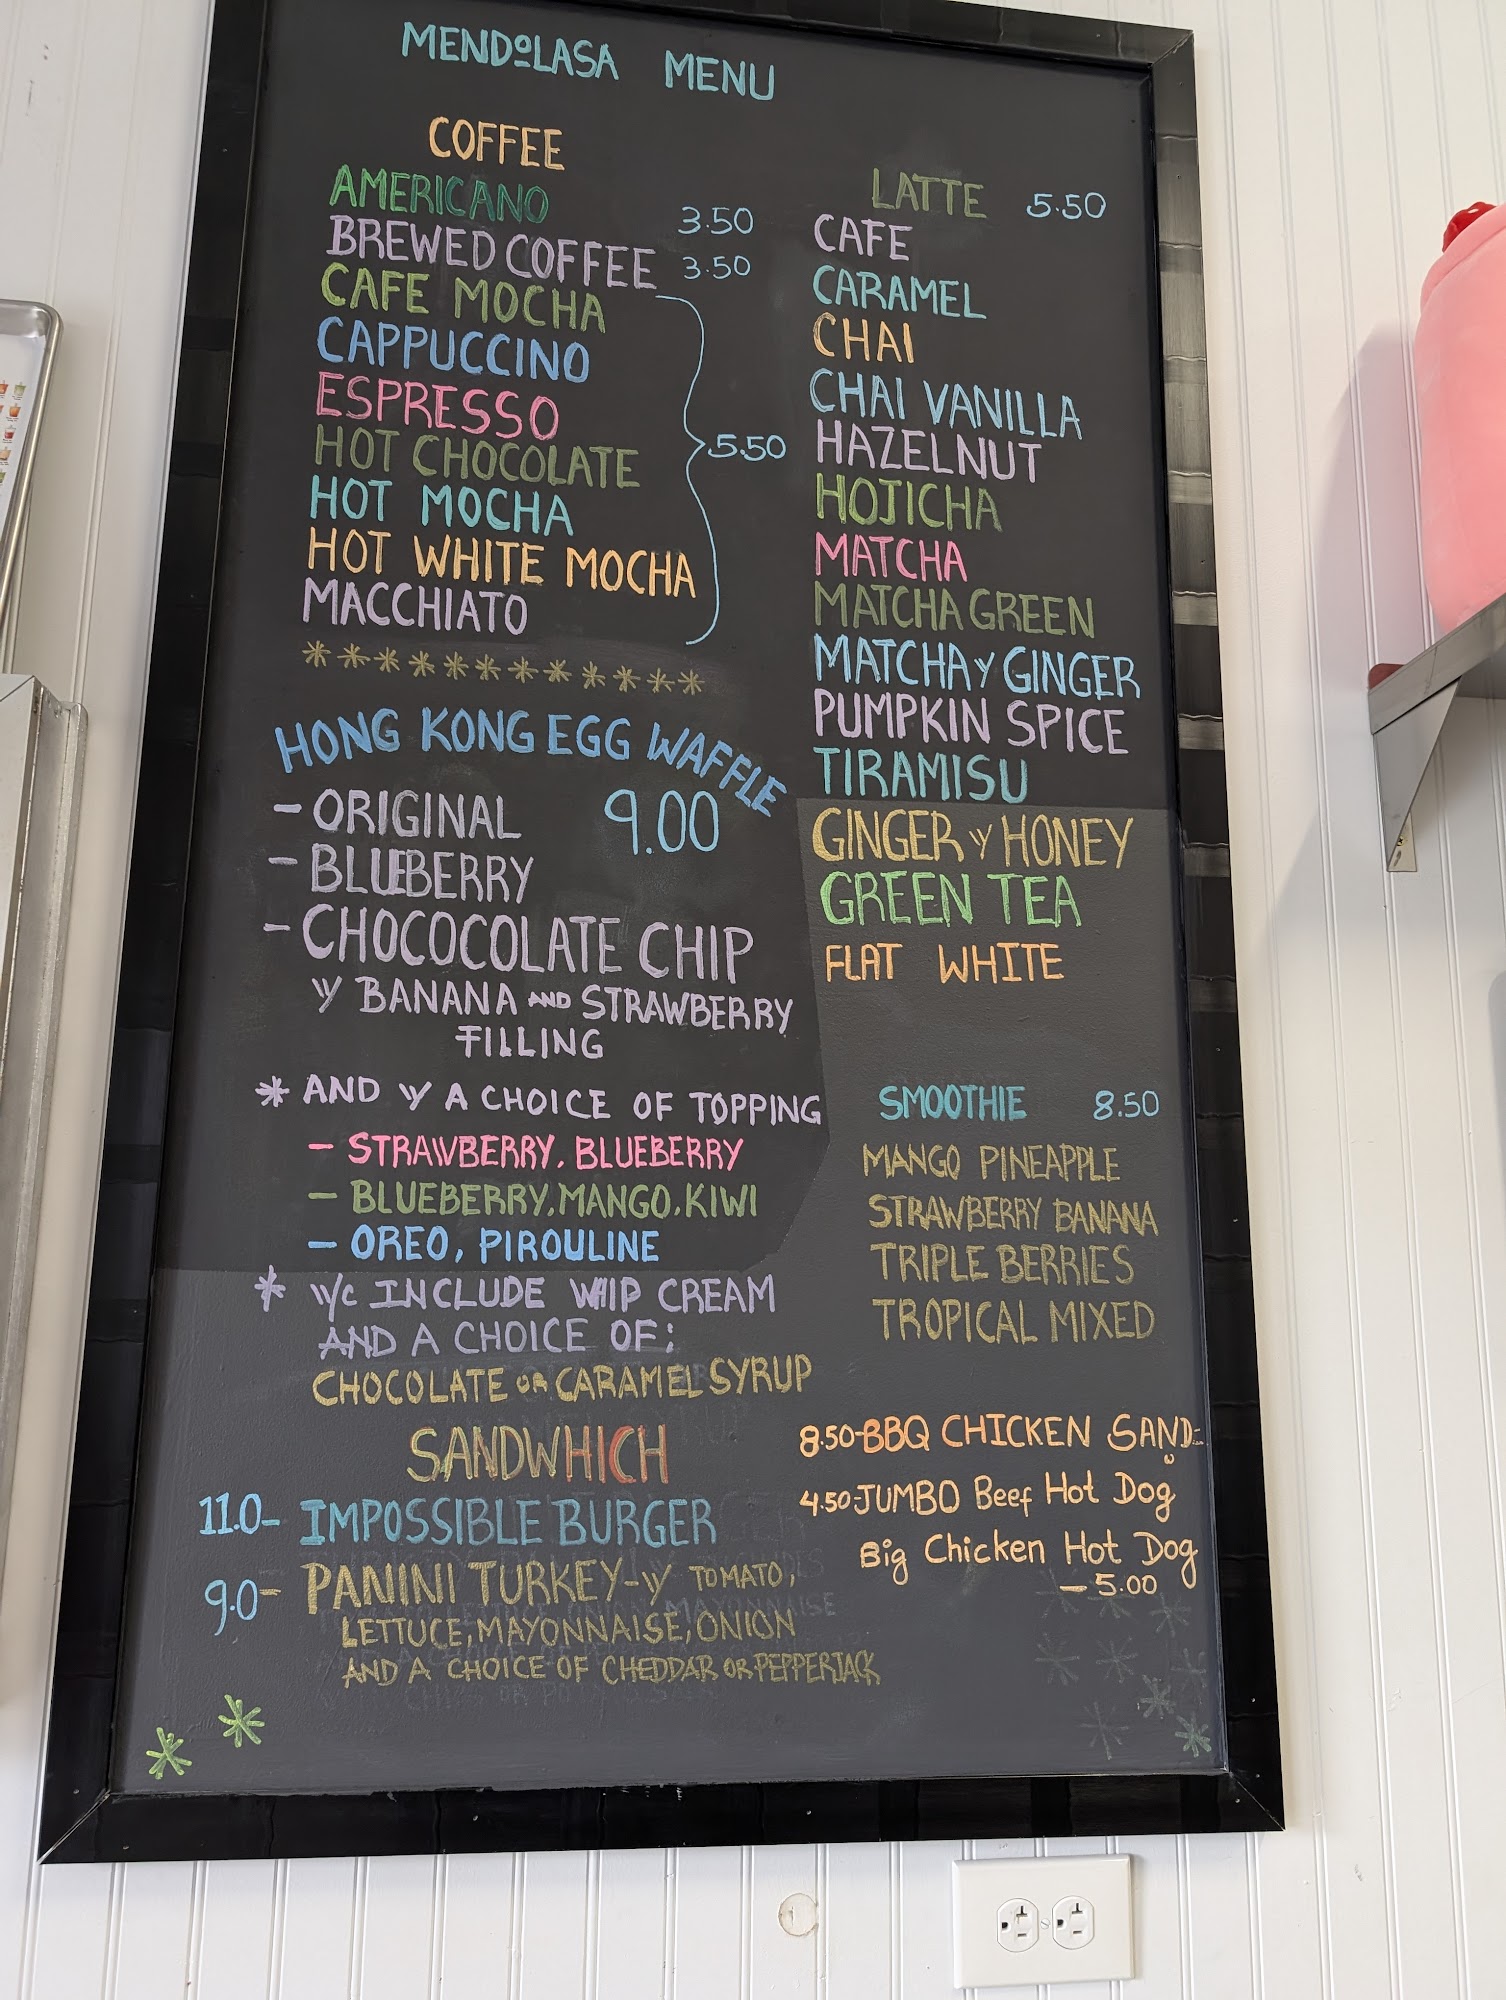 MENDOLASA MENU
COFFEE
AMERICANO 3.50
BREWED COFFEE 3.50
CAFE MOCHA
CAPPUCCINO
ESPRESSO
HOT CHOCOLATE 5.50
HOT MOCHA
HOT WHITE MOCHA
MACCHIATO
**********
HONG KONG EGG WAFFLE
- ORIGINAL 9.00
- BLUEBERRY
- CHOCOCOLATE CHIP
W/ BANANA AND STRAWBERRY
FILLING
* AND W/ A CHOICE OF TOPPING
- STRAWBERRY, BLUEBERRY
- BLUEBERRY, MANGO, KIWI
- OREO, PIROULINE
* W/C INCLUDE WHIP CREAM
AND A CHOICE OF:
CHOCOLATE OR CARAMEL SYRUP
SANDWHICH
11.0- IMPOSSIBLE BURGER
9.0- PANINI TURKEY - W/ TOMATO,
LETTUCE, MAYONNAISE, ONION
AND A CHOICE OF CHEDDAR OR PEPPERJACK
LATTE 5.50
CAFE
CARAMEL
CHAI
CHAI VANILLA
HAZELNUT
HOJICHA
MATCHA
MATCHA GREEN
MATCHA W/ GINGER
PUMPKIN SPICE
TIRAMISU
GINGER W/ HONEY
GREEN TEA
FLAT WHITE
SMOOTHIE 8.50
MANGO PINEAPPLE
STRAWBERRY BANANA
TRIPLE BERRIES
TROPICAL MIXED
8.50-BBQ CHICKEN SAND-
W
4.50-JUMBO Beef Hot Dog
Big Chicken Hot Dog
- 5.00